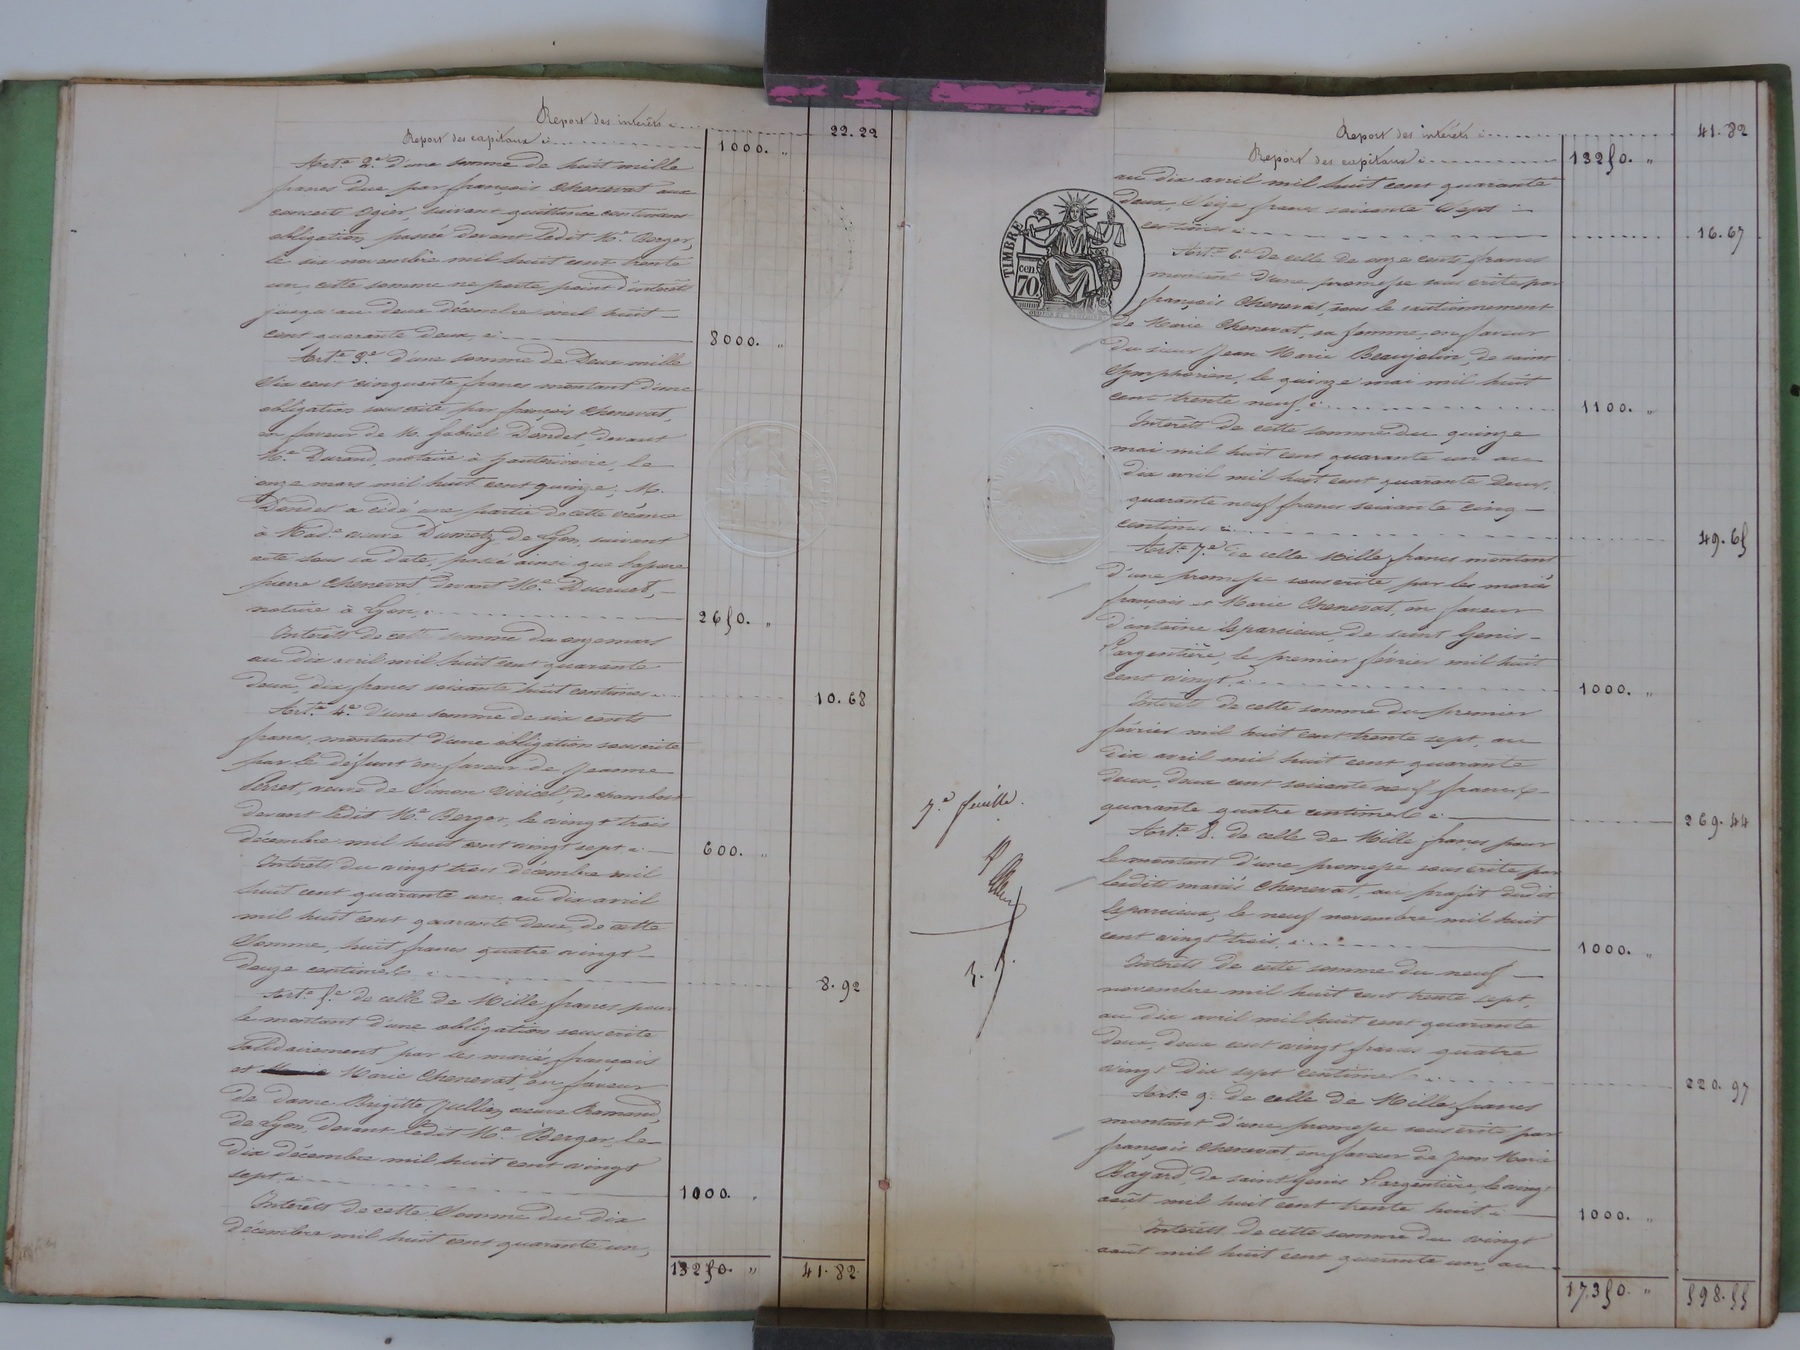 Report des intérêts ci 22.22
Report des capitaux ci 1000. "
Art.e 2.e d'une somme de huit mille
francs due par françois Chenevat aux
consorts Ogier, suivant quittance contenant
obligation passée devant ledit M.e Berger,
le six novembre mil huit cent trente
un, cette somme ne porte point d'intérêts
jusqu'au deux décembre mil huit
cent quarante deux, ci 8000. "
Art.e 3.e d'une somme de Deux mille
Six cent cinquante francs montant d'une
obligation souscrite par françois Chenevat,
en faveur de M. Gabriel Dendet, devant
M.e Durand, notaire à , le
onze mars mil huit cent quinze; M.
Dendet a cédé une partie de cette créance
à Mad.e veuve Dumetz, de Lyon, suivant
acte sous sa date, passée ainsi que
pierre Chenevat, devant M.e Ducruet,
notaire à Lyon, ci 2650. "
Intérêts de cette somme du onze mars
au dix avril mil huit cent quarante
deux, dix francs soixante huit centimes ci 10.68
Art.e 4.e d'une somme de six cents
francs, montant d'une obligation souscrite
par le défunt en faveur de Jeanne
Perret, veuve de Simon Viricel, de chambost
devant ledit M.e Berger, le vingt trois
décembre mil huit cent vingt sept ci 600. "
Intérêts du vingt trois décembre mil
huit cent quarante un, au dix avril
mil huit cent quarante deux, de cette
Somme, huit francs quatre vingt
douze centimes ci 8.92
Art.e 5.e de celle de Mille francs pour
le montant d'une obligation souscrite
solidairement par les mariés françois
et Marie Chenevat, en faveur
de dame Brigitte Jullien veuve ,
de Lyon, devant ledit M.e Berger, le
dix décembre mil huit cent vingt
sept, ci 1000. "
Intérêts de cette Somme du dix
décembre mil huit cent quarante un,
13250. " 41.82
Report des intérêts ci 41.82
Report des capitaux ci 13250. "
au dix avril mil huit cent quarante
deux, Seize francs soixante Sept
centimes ci 16.67
TIMBRE
cen
70
Art.e 6.e de celle de onze cents francs
montant d'une promesse souscrite par
françois Chenevat, sous le cautionnement
de Marie Chenevat, sa femme, en faveur
du sieur Jean Marie Beaujolin, de saint
Symphorien, le quinze mai mil huit
cent trente neuf, ci 1100. "
Intérêts de cette somme du quinze
mai mil huit cent quarante un au
dix avril mil huit cent quarante deux,
quarante neuf francs soixante cinq
centimes ci 49.65
Art.e 7.e de celle Mille francs montant
d'une promesse souscrite par les mariés
françois et Marie Chenevat, en faveur
d'antoine leparcieux, de saint Genis
l'argentière, le premier février mil huit
cent vingt, ci 1000. "
Intérêts de cette somme du premier
février mil huit cent trente sept, au
dix avril mil huit cent quarante
deux, deux cent soixante neuf francs
quarante quatre centimes ci 269.44
7.e feuille.
Art.e 8. de celle de Mille francs pour
le montant d'une promesse souscrite par
lesdits mariés Chenevat, au profit dudit
leparcieux, le neuf novembre mil huit
cent vingt trois, ci 1000. "
Intérêts de cette somme du neuf
novembre mil huit cent trente sept,
au dix avril mil huit cent quarante
deux, deux cent vingt francs quatre
vingt dix sept centimes 220.97
Art.e 9. de celle de Mille francs
montant d'une promesse souscrite par
françois Chenevat en faveur de Jean Marie
Bayard, de saint Genis l'argentière, le vingt
août mil huit cent trente huit ci 1000. "
Intérêts de cette somme du vingt
août mil huit cent quarante un, au
17350. " 598.55